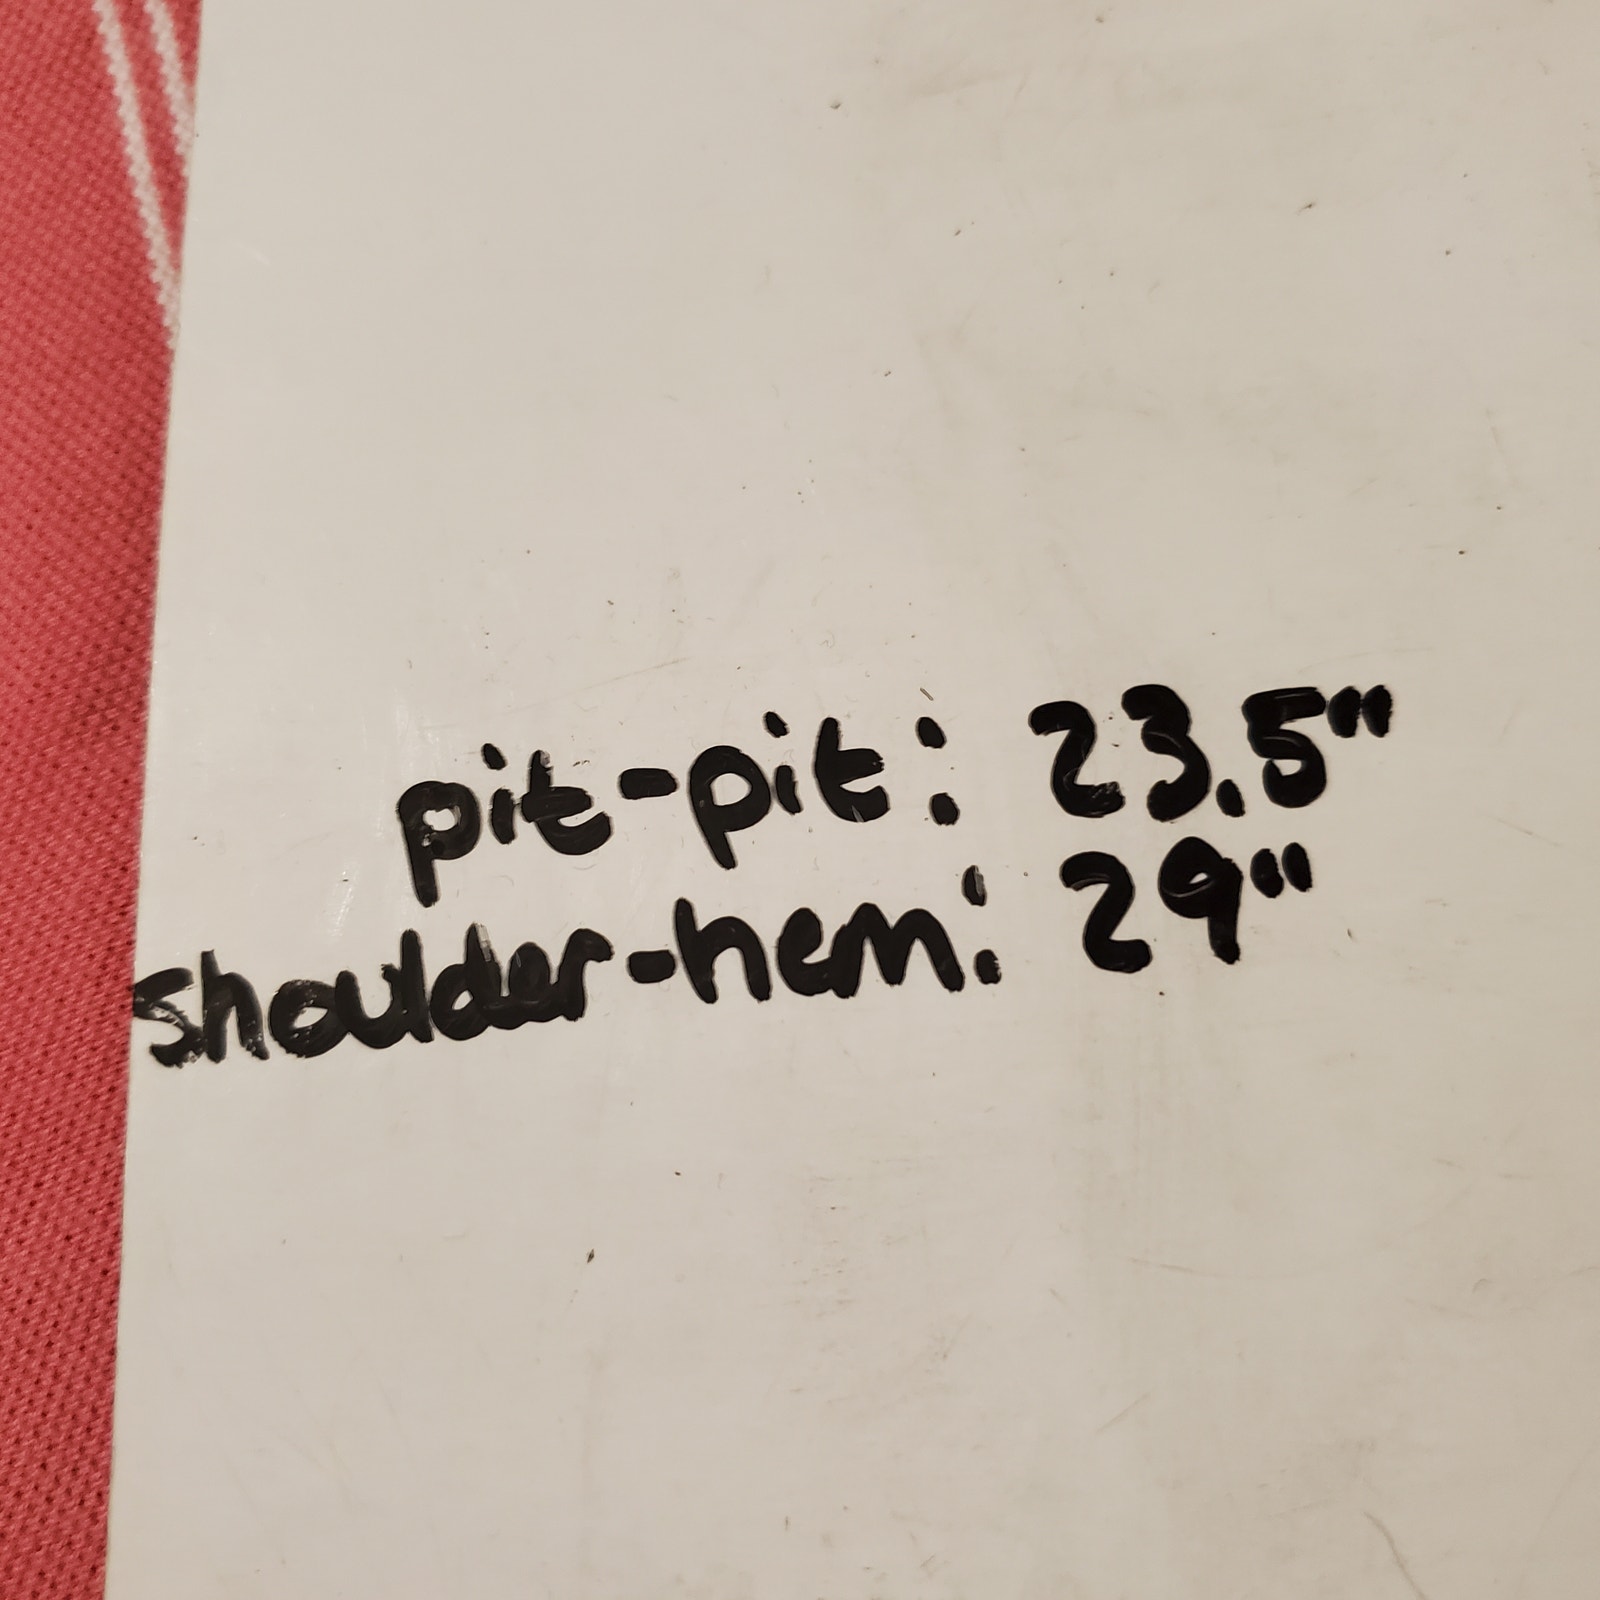 pit-pit: 23.5"
shoulder-hem: 29"